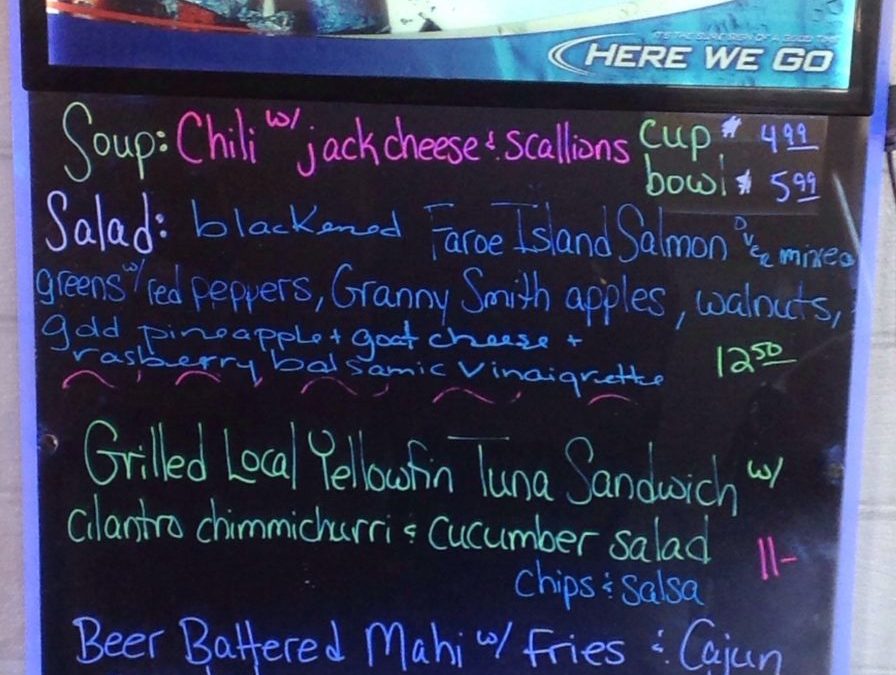 IT'S THE SURE SIGN OF A GOOD TIME
HERE WE GO
Soup: Chili w/ jack cheese & scallions cup $ 4 99
bowl $ 5 99
Salad: blackened Faroe Island Salmon over mixed
greens w/ red peppers, Granny Smith apples, walnuts,
gold pineapple + goat cheese +
rasberry balsamic vinaigrette 12 50
Grilled Local Yellowfin Tuna Sandwich w/
cilantro chimmichurri & cucumber salad 11-
chips & salsa
Beer Battered Mahi w/ Fries & Cajun